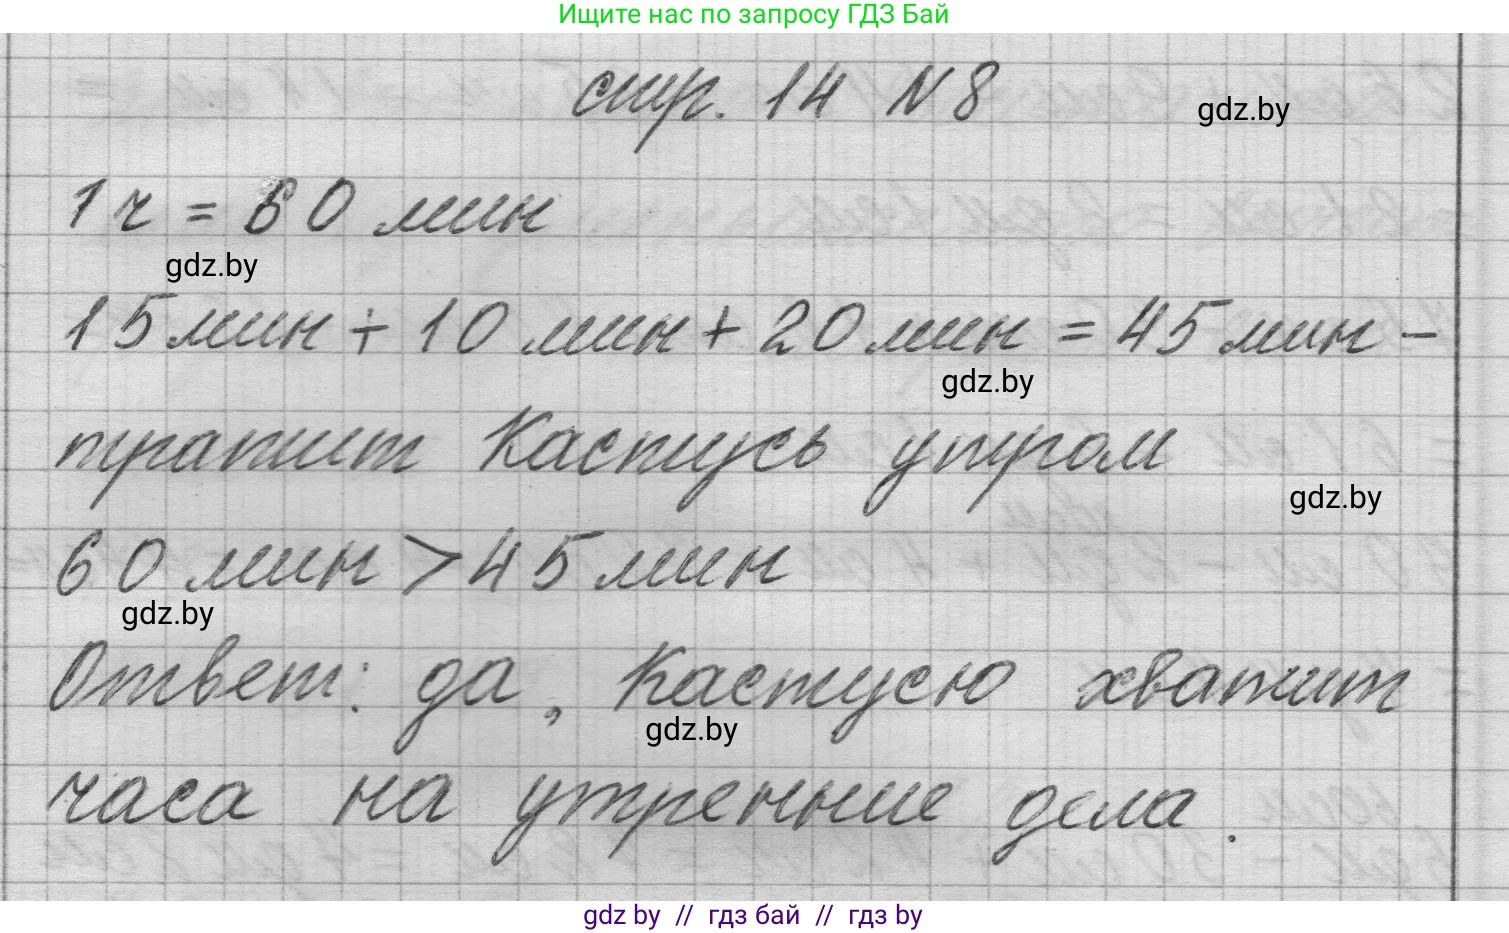 Ищите нас по запросу ГДЗ Бай
стр. 14 N 8
gdz.by
1 ч = 60 мин
gdz.by
15 мин + 10 мин + 20 мин = 45 мин –
gdz.by
тратит Кастусь утром
gdz.by
60 мин > 45 мин
gdz.by
Ответ: да, Кастусю хватит
gdz.by
часа на утренние дела.
gdz by // гдз бай // гдз by